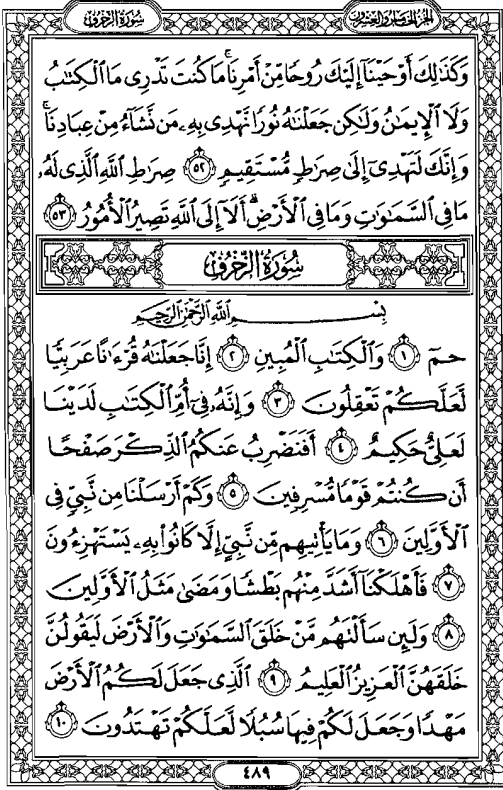 سُورَةُ الزُّخْرُفِ
الجزء الخامس والعشرون
وَكَذَٰلِكَ أَوْحَيْنَآ إِلَيْكَ رُوحًا مِّنْ أَمْرِنَا ۚ مَا كُنتَ تَدْرِى مَا ٱلْكِتَٰبُ
وَلَا ٱلْإِيمَٰنُ وَلَٰكِن جَعَلْنَٰهُ نُورًا نَّهْدِى بِهِۦ مَن نَّشَآءُ مِنْ عِبَادِنَا ۚ
وَإِنَّكَ لَتَهْدِىٓ إِلَىٰ صِرَٰطٍ مُّسْتَقِيمٍ ٥٢ صِرَٰطِ ٱللَّهِ ٱلَّذِى لَهُۥ
مَا فِى ٱلسَّمَٰوَٰتِ وَمَا فِى ٱلْأَرْضِ ۗ أَلَآ إِلَى ٱللَّهِ تَصِيرُ ٱلْأُمُورُ ٥٣
سُورَةُ الزُّخْرُفِ
بِسْمِ ٱللَّهِ ٱلرَّحْمَٰنِ ٱلرَّحِيمِ
حمٓ ١ وَٱلْكِتَٰبِ ٱلْمُبِينِ ٢ إِنَّا جَعَلْنَٰهُ قُرْءَٰنًا عَرَبِيًّا
لَّعَلَّكُمْ تَعْقِلُونَ ٣ وَإِنَّهُۥ فِىٓ أُمِّ ٱلْكِتَٰبِ لَدَيْنَا
لَعَلِىٌّ حَكِيمٌ ٤ أَفَنَضْرِبُ عَنكُمُ ٱلذِّكْرَ صَفْحًا
أَن كُنتُمْ قَوْمًا مُّسْرِفِينَ ٥ وَكَمْ أَرْسَلْنَا مِن نَّبِىٍّ فِى
ٱلْأَوَّلِينَ ٦ وَمَا يَأْتِيهِم مِّن نَّبِىٍّ إِلَّا كَانُوا۟ بِهِۦ يَسْتَهْزِءُونَ
٧ فَأَهْلَكْنَآ أَشَدَّ مِنْهُم بَطْشًا وَمَضَىٰ مَثَلُ ٱلْأَوَّلِينَ
٨ وَلَئِن سَأَلْتَهُم مَّنْ خَلَقَ ٱلسَّمَٰوَٰتِ وَٱلْأَرْضَ لَيَقُولُنَّ
خَلَقَهُنَّ ٱلْعَزِيزُ ٱلْعَلِيمُ ٩ ٱلَّذِى جَعَلَ لَكُمُ ٱلْأَرْضَ
مَهْدًا وَجَعَلَ لَكُمْ فِيهَا سُبُلًا لَّعَلَّكُمْ تَهْتَدُونَ ١٠
٤٨٩